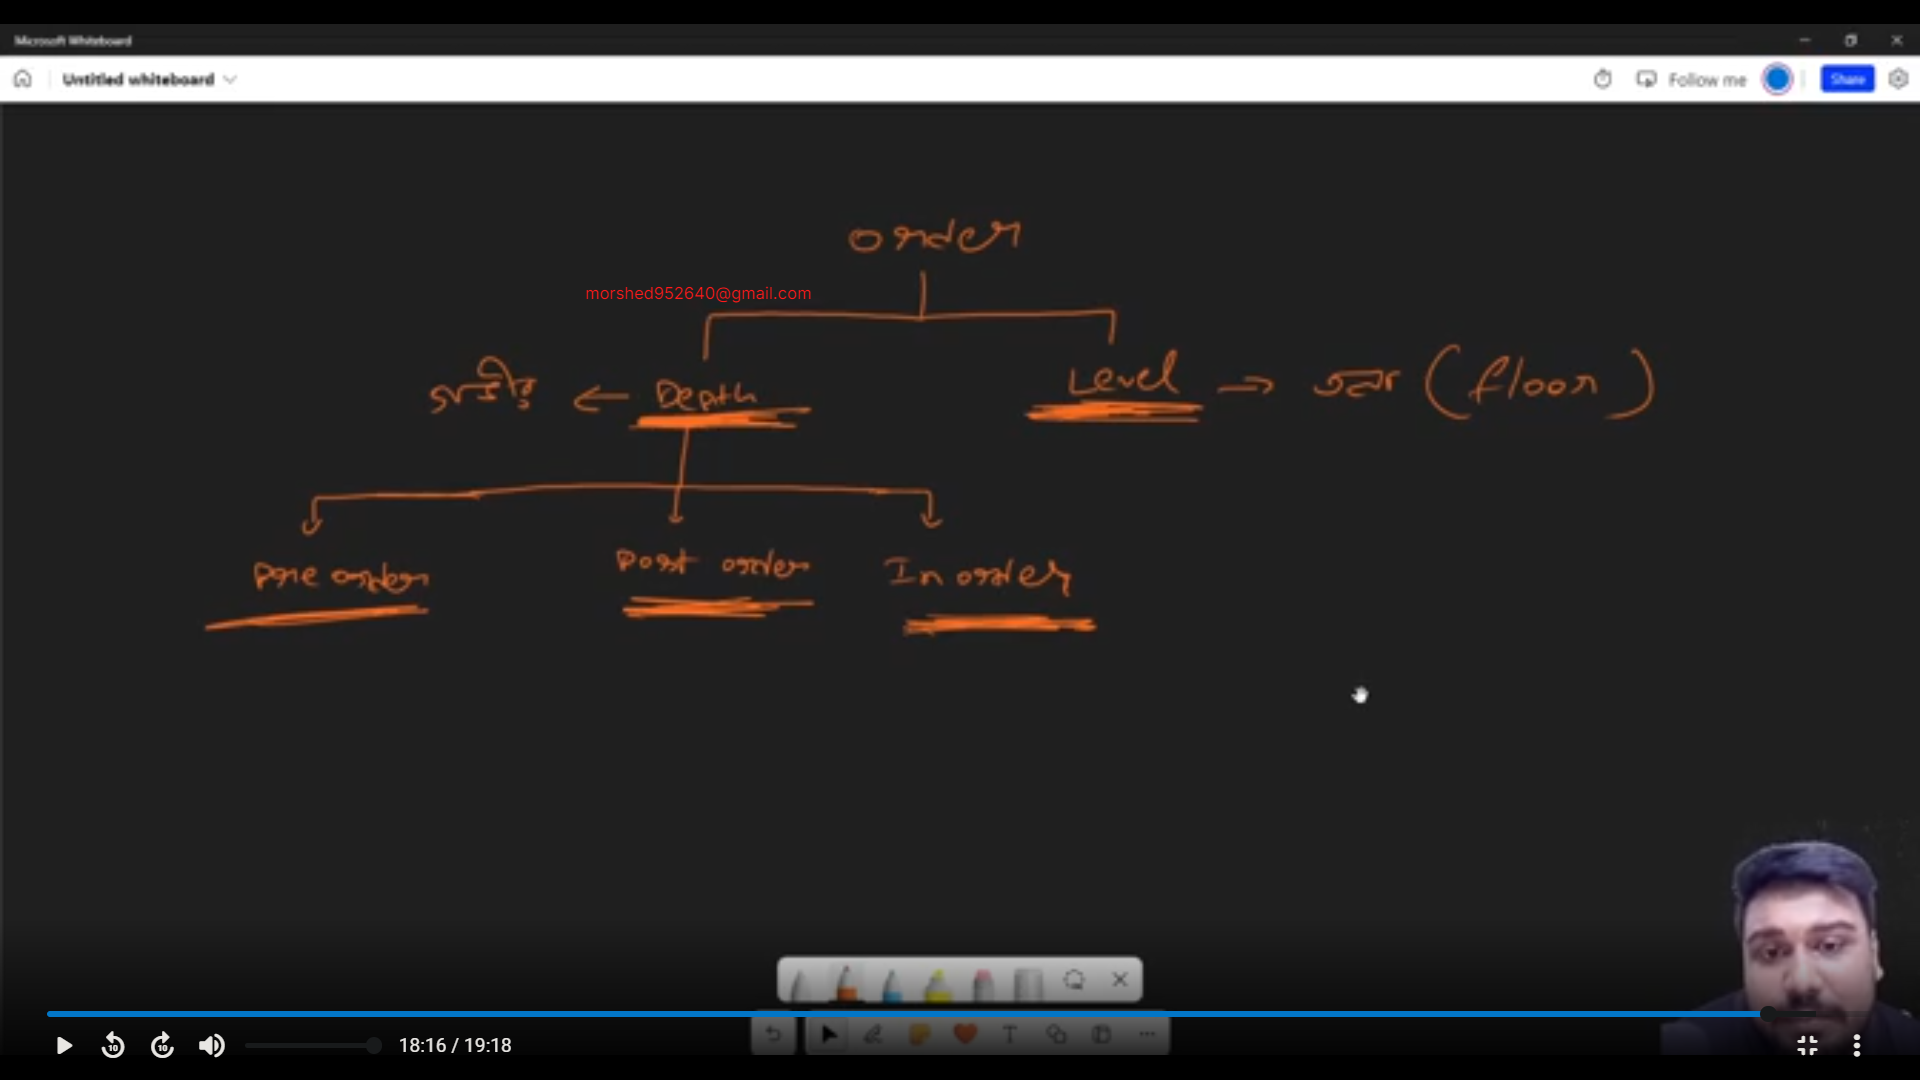 Microsoft Whiteboard
Untitled whiteboard
Follow me
Share
order
morshed952640@gmail.com
গভীর ← Depth
Level → তলা (floor)
Pre order
Post order
In order
10
10
18:16 / 19:18